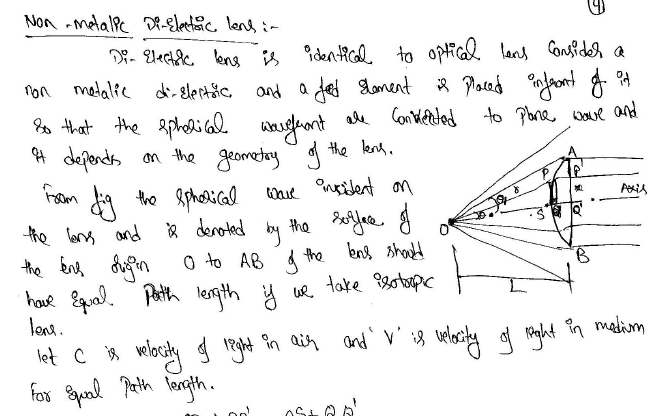 (4)
Non-metalic Di-Electric lens :-
Di-Electric lens is identical to optical lens Consider a
non metalic di-electric and a feed element is placed infront of it
So that the spherical wavefront are Converted to plane wave and
it depends on the geometry of the lens.
From fig the spherical wave insident on
the lens and is denoted by the surface of
the lens origin O to AB of the lens should
have Equal Path length if we take isotropic
lens.
let C is velocity of light in air and 'V' is velocity of light in medium
For Equal Path length.
A
P P'
r
Axis
O S Q Q'
B
L